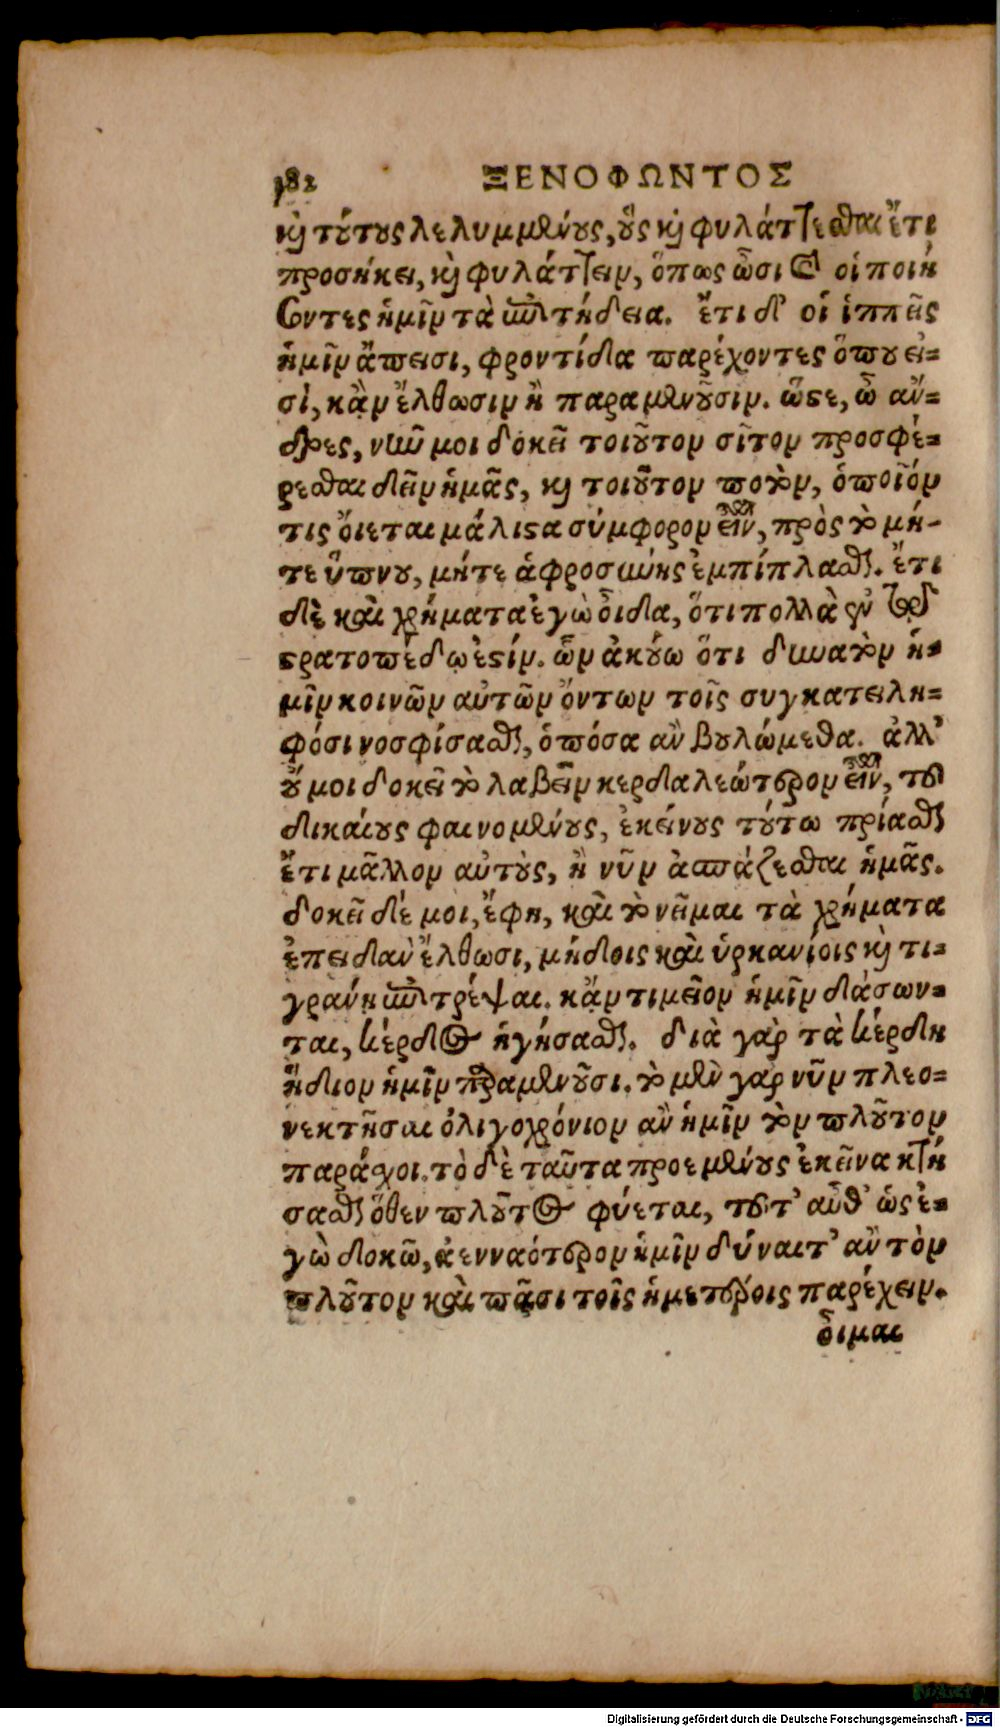 182 ΞΕΝΟΦΩΝΤΟΣ
καὶ τούτους λελυμμένους, οὓς καὶ φυλάττεσθαι ἔτι
προσήκει, καὶ φυλάττειν, ὅπως ὦσι καὶ οἱ ποιή
σοντες ἡμῖν τὰ ἐπιτήδεια. ἔτι δ' οἱ ἱππεῖς
ἡμῖν ἄπεισι, φροντίδα παρέχοντες ὅπου εἰ-
σὶ, κἂν ἔλθωσιν ἢ παραμενοῦσιν. ὥστε, ὦ ἄν-
δρες, νῦν μοι δοκεῖ τοιοῦτον σῖτον προσφέ-
ρεσθαι δεῖν ἡμᾶς, καὶ τοιοῦτον ποτὸν, ὁποῖόν
τις οἴεται μάλιστα σύμφορον εἶναι, πρὸς τὸ μή-
τε ὕπνου, μήτε ἀφροσύνης ἐμπίπλασθαι. ἔτι
δὲ καὶ χρήματα ἐγὼ οἶδα, ὅτι πολλὰ ἐν τῷ
στρατοπέδῳ ἐστίν. ὧν ἀκούω ὅτι δυνατὸν ἡ-
μῖν κοινῶν αὐτῶν ὄντων τοῖς συγκατειλη-
φόσι νοσφίσασθαι, ὁπόσα ἂν βουλώμεθα. ἀλλ'
οὔ μοι δοκεῖ τὸ λαβεῖν κερδαλεώτερον εἶναι, τοῦ
δικαίους φαινομένους, ἐκείνους τούτω πρίασθαι
ἔτι μᾶλλον αὐτοὺς, ἢ νῦν ἀσπάζεσθαι ἡμᾶς.
δοκεῖ δέ μοι, ἔφη, καὶ τὸ νεῖμαι τὰ χρήματα
ἐπειδὰν ἔλθωσι, μήδοις καὶ ὑρκανίοις καὶ τι-
γράνῃ ἐπιτρέψαι. κἄν τι μεῖον ἡμῖν δάσων-
ται, κέρδος ἡγήσασθαι. διὰ γὰρ τὰ κέρδη
ἥδιον ἡμῖν παραμενοῦσι. τὸ μὲν γὰρ νῦν πλεο-
νεκτῆσαι ὀλιγοχρόνιον ἂν ἡμῖν τὸν πλοῦτον
παράσχοι. τὸ δὲ ταῦτα προεμένους ἐκεῖνα κτή
σασθαι ὅθεν πλοῦτος φύεται, τοῦτ' αὖθ' ὡς ἐ-
γὼ δοκῶ, ἀενναότερον ἡμῖν δύναιτ' ἂν τὸν
πλοῦτον καὶ πᾶσι τοῖς ἡμετέροις παρέχειν.
οἶμαι
Digitalisierung gefördert durch die Deutsche Forschungsgemeinschaft - DFG